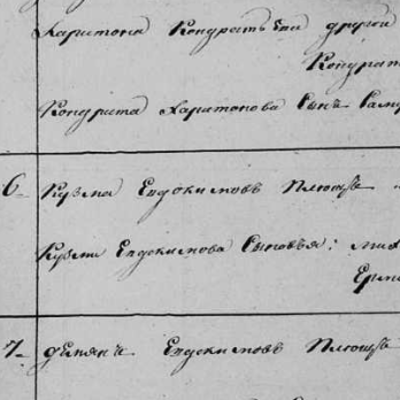 Харитона Кондратьева другой
Кондрат
Кондрата Харитонова Сынъ Сам
6. Кузма Евдокимовъ Плющъ
Кузмы Евдокимова Сыновья: Мих
Ерм
7. Демянъ Евдокимовъ Плющъ